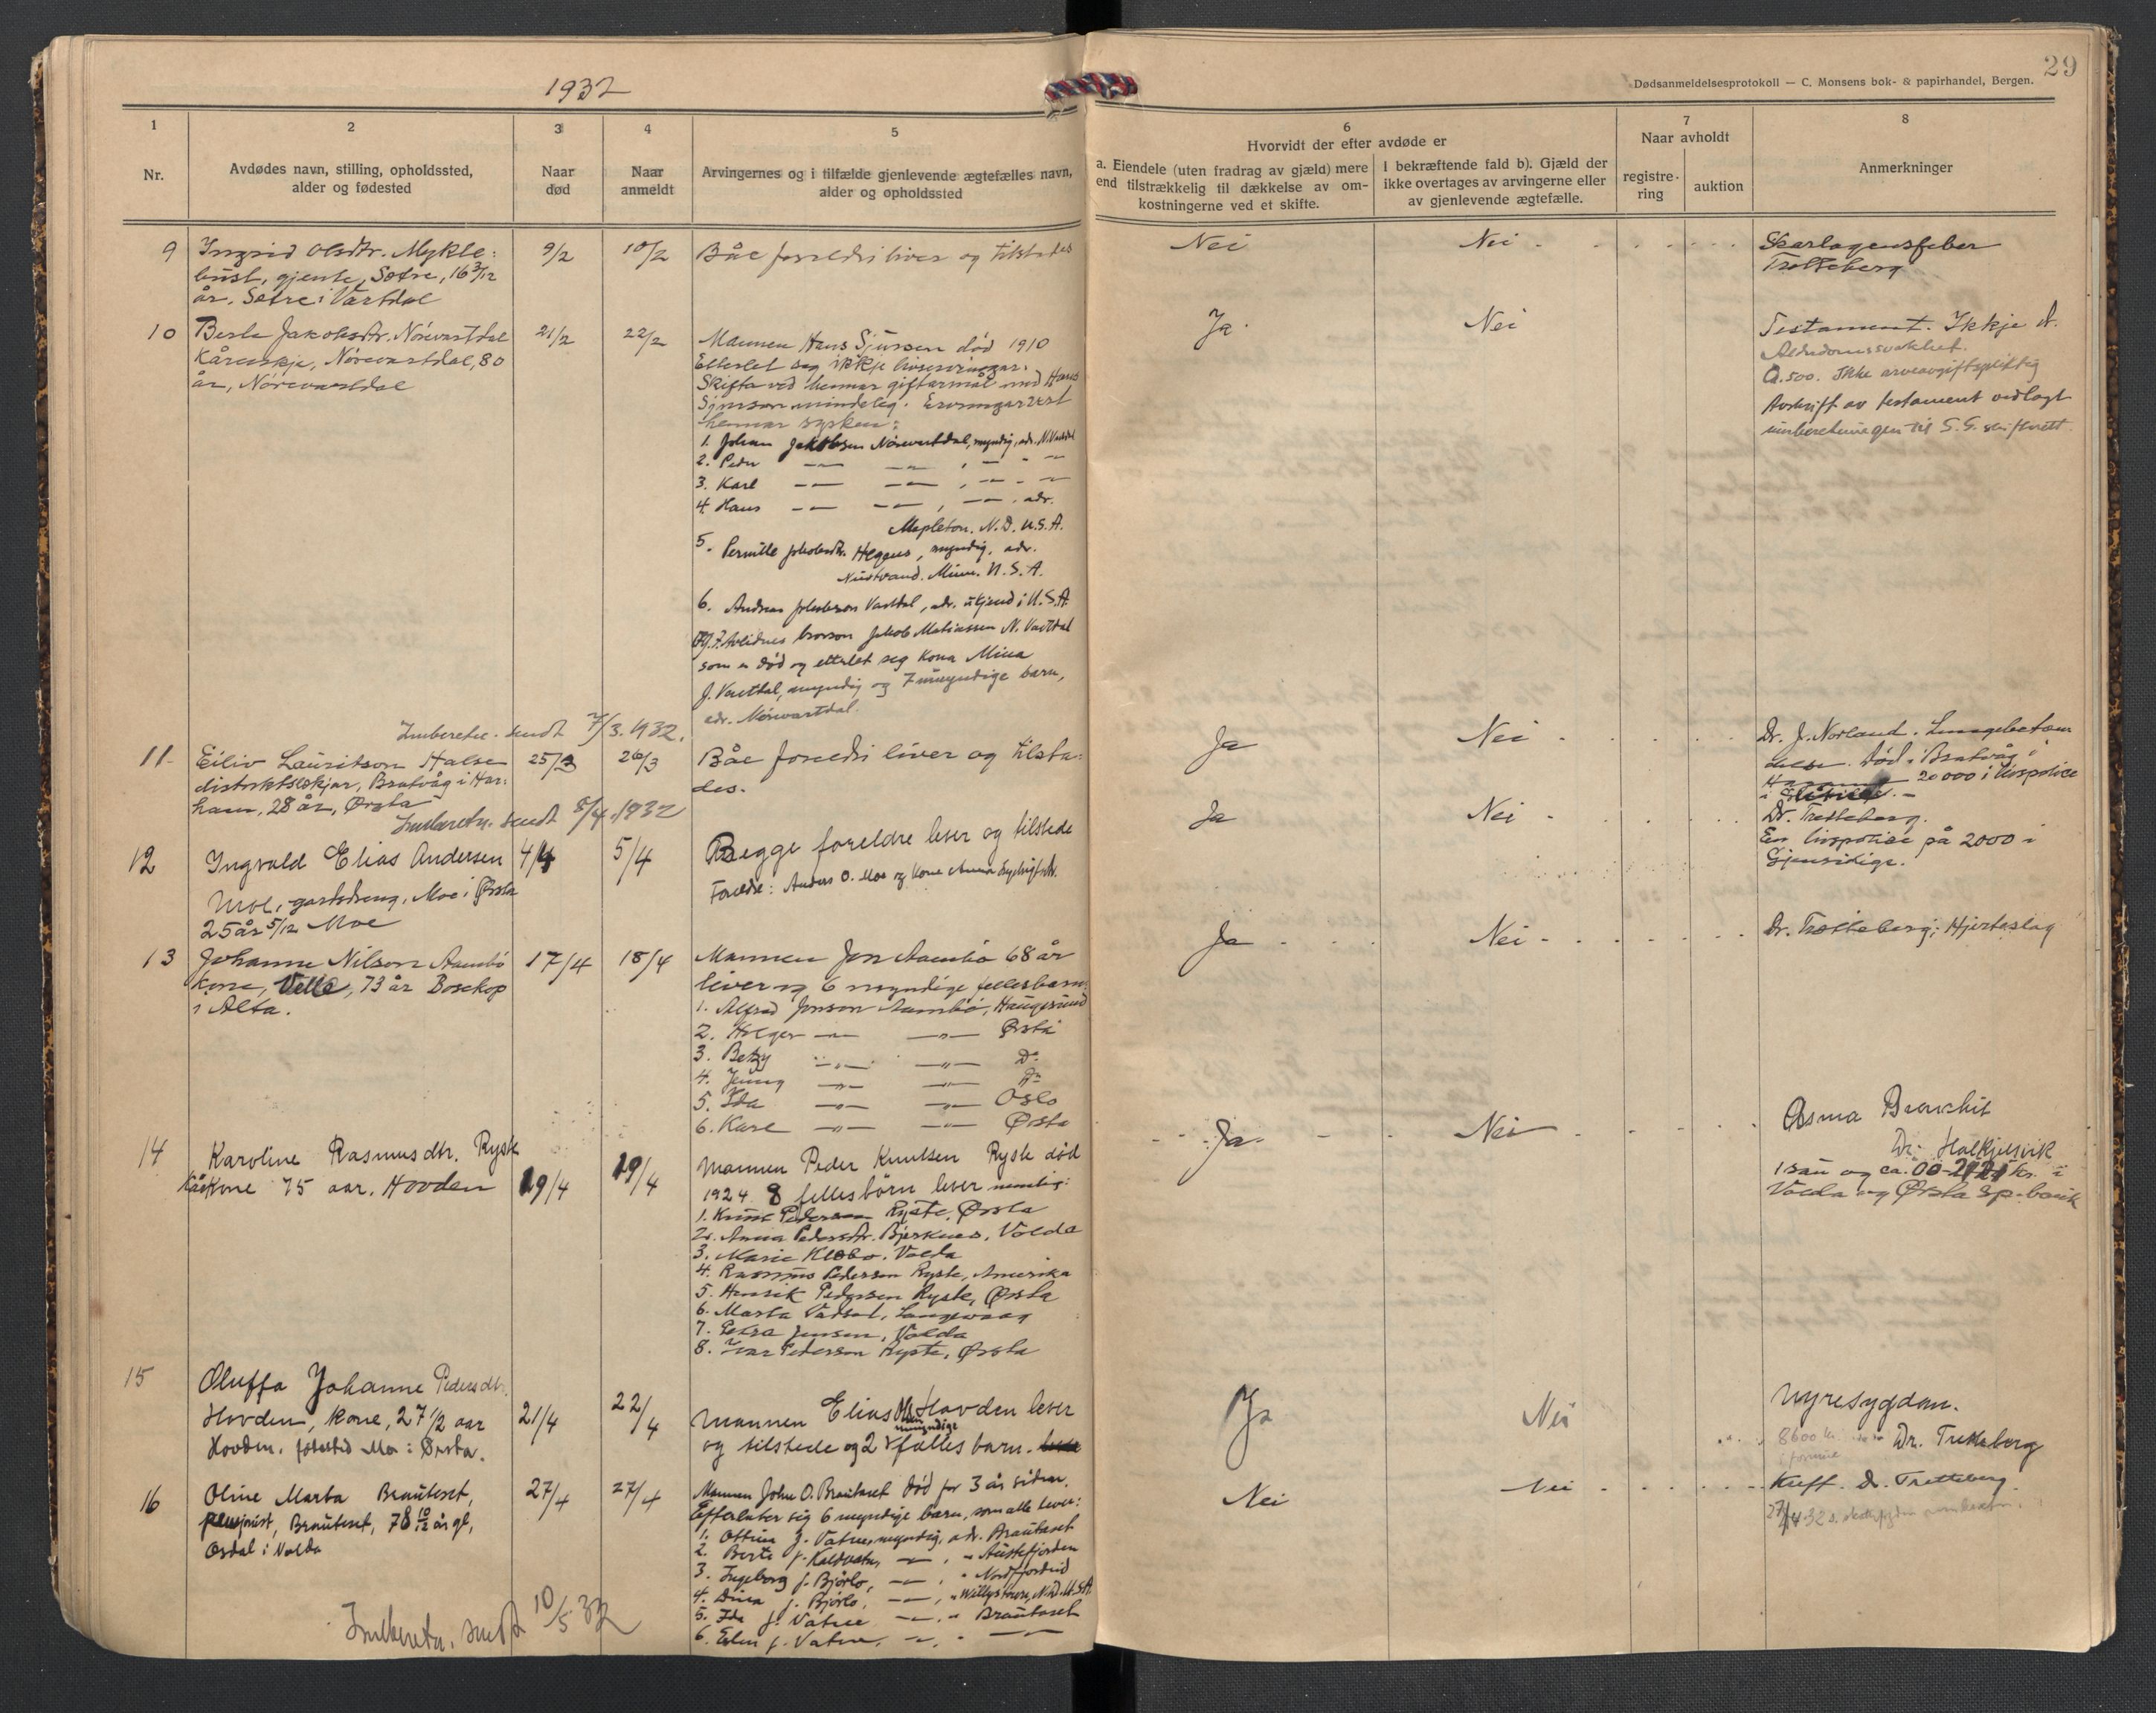 1932
29
Dødsanmeldelsesprotokoll — C. Monsens bok- & papirhandel, Bergen.
1
Nr.
2
Avdødes navn, stilling, opholdssted,
alder og fødested
3
Naar
død
4
Naar
anmeldt
5
Arvingernes og i tilfælde gjenlevende ægtefælles navn,
alder og opholdssted
6
Hvorvidt der efter avdøde er
a. Eiendele (uten fradrag av gjæld) mere
end tilstrækkelig til dækkelse av om-
kostningerne ved et skifte.
I bekræftende fald b). Gjæld der
ikke overtages av arvingerne eller
av gjenlevende ægtefælle.
7
Naar avholdt
registre-
ring
auktion
8
Anmerkninger
9
Ingrid Olsdtr. Mykle-
bust, gjente, Sætre, 16 3/12
år. Sætre i Vartdal
9/2
10/2
Båe foreldri liver og tilstades
Nei
Nei
Skarlagensfeber
Trætteberg
10
Berte Jakobsdtr. Nórevartdal
Kårenskje, Nórevartdal, 80
år, Nórevartdal
21/2
22/2
Mannen Hans Sjursson død 1910
Etterlet seg ikkje livservingar.
Skifta ved hennar giftarmål med Hans
Sjursson mindeleg. Ervingar vert
hennar sysken:
1. Johan Jakobsen Nórevartdal, myndig, adr. N. Vartdal
2. Peder — — , — " —
3. Karl — — , — " —
4. Hans — — , — . adr.
Mapleton. N.D. U.S.A.
5. Pernille Jakobsdtr. Hegges, myndig, adr.
Nustrand. Minn. U.S.A.
6. Andreas Jakobsen Vartdal, adr. ukjend i U.S.A.
og 7. Avlidnes brorson Jakob Matiassen N. Vartdal
som er død og etterlet seg kona Mina
J. Vartdal, myndig og 7 umyndige barn,
adr. Nórevartdal.
Ja
Nei
Testament. Ikkje
Alderdomssvakhet.
Ca. 500. Ikke arveavgiftspliktig
Avskrift av testament vedlagt
innberetningen til S.S. skifterett.
Innberetn. sendt 7/3. 1932.
11
Eiliv Lauritson Halse
distriktslækjar, Bratvåg i Har-
ham, 28 år, Ørsta
25/3
26/3
Båe foreldri liver og tilsta-
des.
Ja
Nei
Dr. J. Norland. Lungebetæn-
delse. Død i Bratvåg i
20000 i livspolice
Innberetn. sendt 5/4. 1932
12
Ingvald Elias Andersen
Moe, gardsdreng, Moe i Ørsta
25 år 5/12 Moe
4/4
5/4
Begge foreldre lever og tilstede
Foreldre: Anders O. Moe og kone Anna
Ja
Nei
Dr. Trætteberg.
En livspolice på 2000 i
Gjensidige.
13
Johanne Nilson Aambö
kone, Velle, 73 år Bosekop
i Alta.
17/4
18/4
Mannen Jon Aambö 68 år
liver og 6 myndige fellesbarn
1. Alfred Jonson Aambö, Haugesund
2. Holger —"— —"— Ørsta
3. Betzy —"— —"— Do
4. Jenny —"— —"— Do
5. Ida —"— —"— Oslo
6. Kare —"— —"— Ørsta
Ja
Nei
Dr. Trætteberg; Hjerteslag
14
Karoline Rasmusdtr. Ryste
Kårkone 75 aar. Hovden
19/4
19/4
Mannen Peder Knutsen Ryste død
1924. 8 fellesbörn lever nemlig:
1. Knut Pedersen Ryste, Ørsta
2. Anna Pedersdtr. Bjerknes, Volda
3. Marie Klobo, Volda
4. Rasmus Pedersen Ryste, Amerika
5. Henrik Pedersen Ryste, Ørsta
6. Marta Vadset, Langevaag
7. Petra Jensen, Volda
8. Ivar Pedersen Ryste, Ørsta
Ja
Nei
Asma Bronchit
Dr. Halkjelsvik
1 sau og ca. kr. i
Volda og Ørsta sp.bank
15
Oluffa Johanne Pedersdtr.
Hovden, kone, 27 1/2 aar
Hovden. fødested Mo i Ørsta.
21/4
22/4
Mannen Elias Hovden lever
umyndige
og tilstede og 2 fælles barn.
Ja
Nei
Nyresygdom.
8600 kr.
i formue
Dr. Trætteberg
16
Oline Marta Brauteset,
pensjonist, Brauteset, 78 10/12 år gl,
Osdal i Volda
27/4
27/4
Mannen John O. Brautaset død for 3 år siden.
Efterlater sig 6 myndige barn, som alle lever:
1. Ottine J. Vatne, myndig, adr. Brautaset
2. Berte J. Kaldvatn, — , " Austefjorden
3. Ingeborg J. Bjørlo, — , " Nordfjordeid
4. Dina J. Bjørlo, — , " Willystown, N.D. U.S.A.
5. Ida J. Vatne — , " Brautaset
6. Elen J. Vatne, — , " —
Nei
Nei
Kreft. Dr. Trætteberg.
27/4 32
Innberetn. sendt 10/5 32